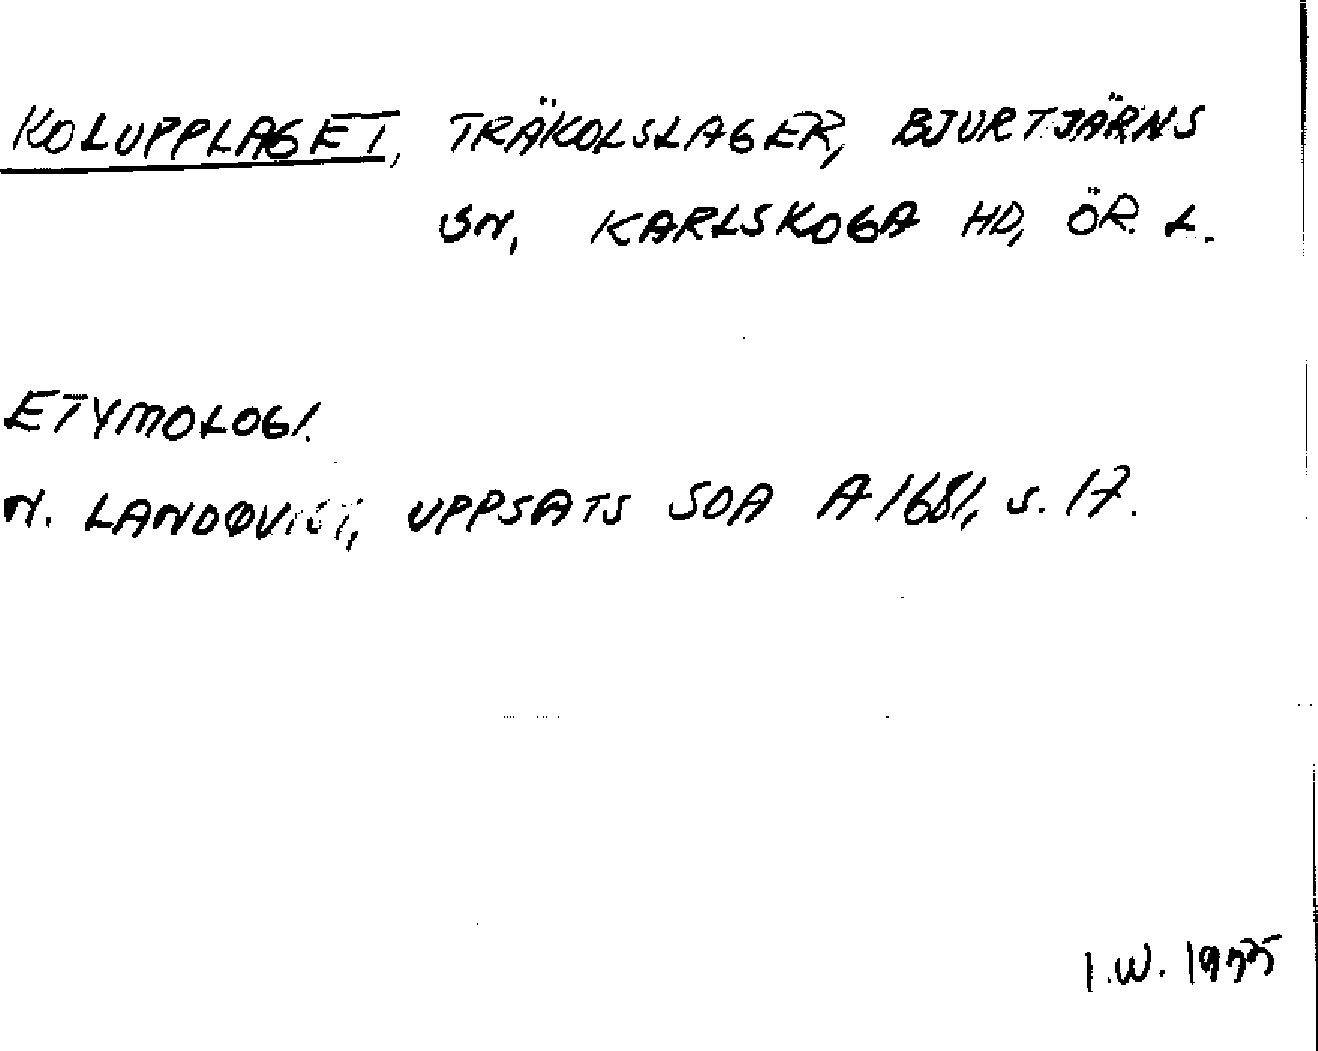 KOLUPPLAGET, TRÄKOLSLAGER, BJURTJÄRNS
SN, KARLSKOGA HD, ÖR. L.
ETYMOLOGI.
N. LANDQVIST, UPPSATS SOA A 1681, S. 17.
I.W. 1975